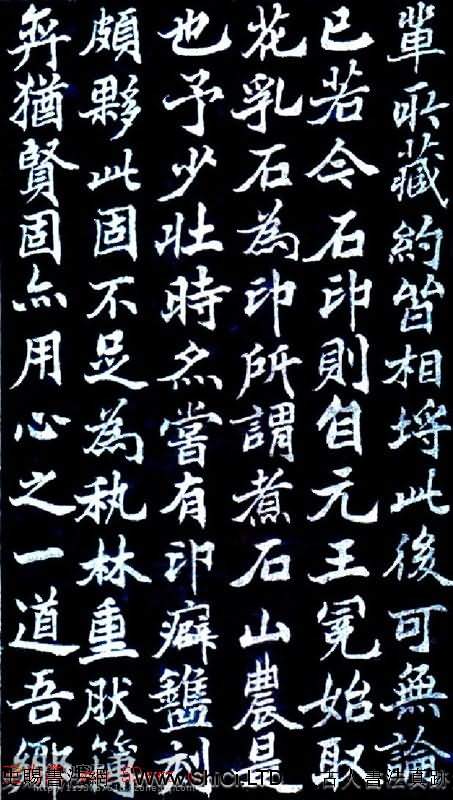 輩所藏約皆相埒此後可無論
已若今石印則自元王冕始取
花乳石為印所謂煮石山農是
也予少壯時亦嘗有印癖鐫刻
頗夥此固不足為秇林重肰簿
弈猶賢固亦用心之一道吾鄉
書法網 www.ShiCi.LTD 古人書法真跡